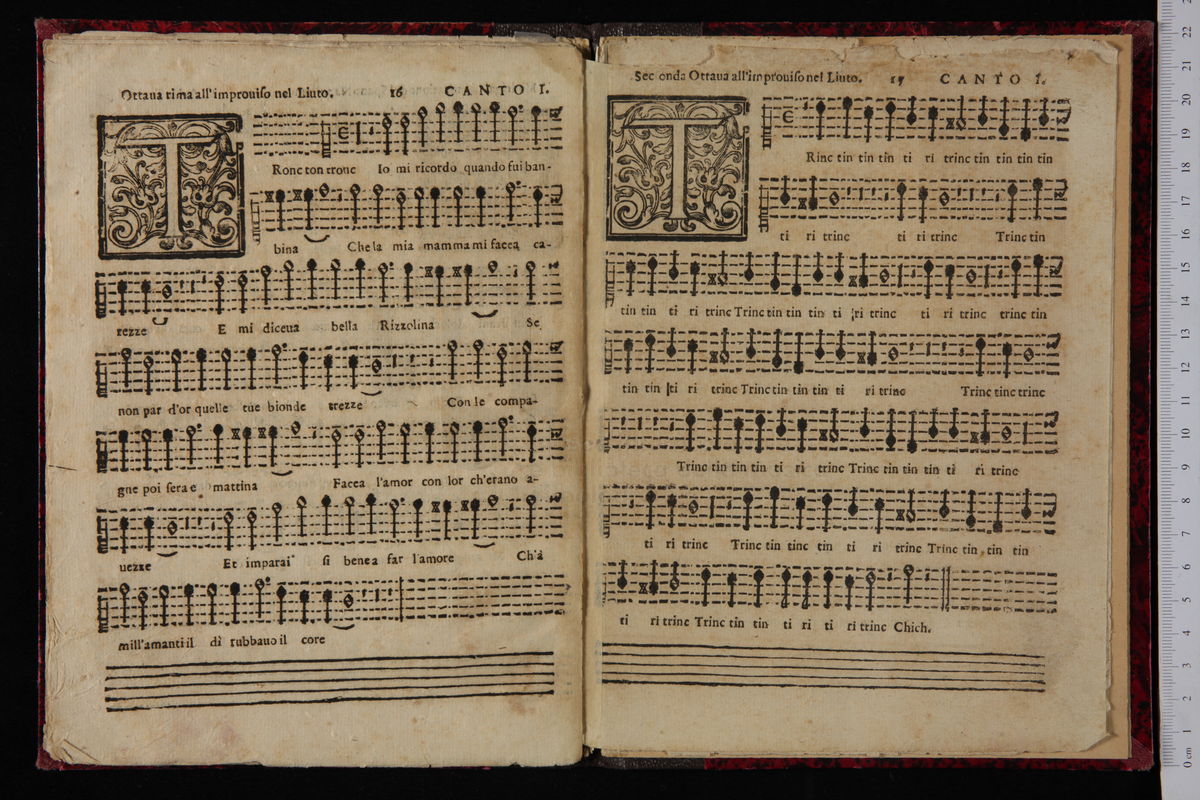 Ottaua rima all'improuiſo nel Liuto. 16 CANTO I.
T
Ronc ton tronc Io mi ricordo quando fui ban-
bina Che la mia mamma mi facea ca-
rezze E mi diceua bella Rizzolina Se
non par d'or quelle tue bionde trezze Con le compa-
gne poi ſera e mattina Facea l'amor con lor ch'erano a-
uezze Et imparai ſi bene a far l'amore Ch'à
mill'amanti il dì rubbauo il core
Seconda Ottaua all'improuiſo nel Liuto. 17 CANTO I.
T
Rinc tin tin tin ti ri trinc tin tin tin tin
ti ri trinc ti ri trinc Trinc tin
tin tin ti ri trinc Trinc tin tin tin ti ri trinc ti ri trinc trinc tin
tin tin ti ri trinc Trinc tin tin tin ti ri trinc Trinc tinc trinc
Trinc tin tin tin ti ri trinc Trinc tin tin tin ti ri trinc
ti ri trinc Trinc tin tinc tin ti ri trinc Trinc tin tin tin
ti ri trinc Trinc tin tin ti ri ti ri trinc Chich.
0 cm 1 2 3 4 5 6 7 8 9 10 11 12 13 14 15 16 17 18 19 20 21 22